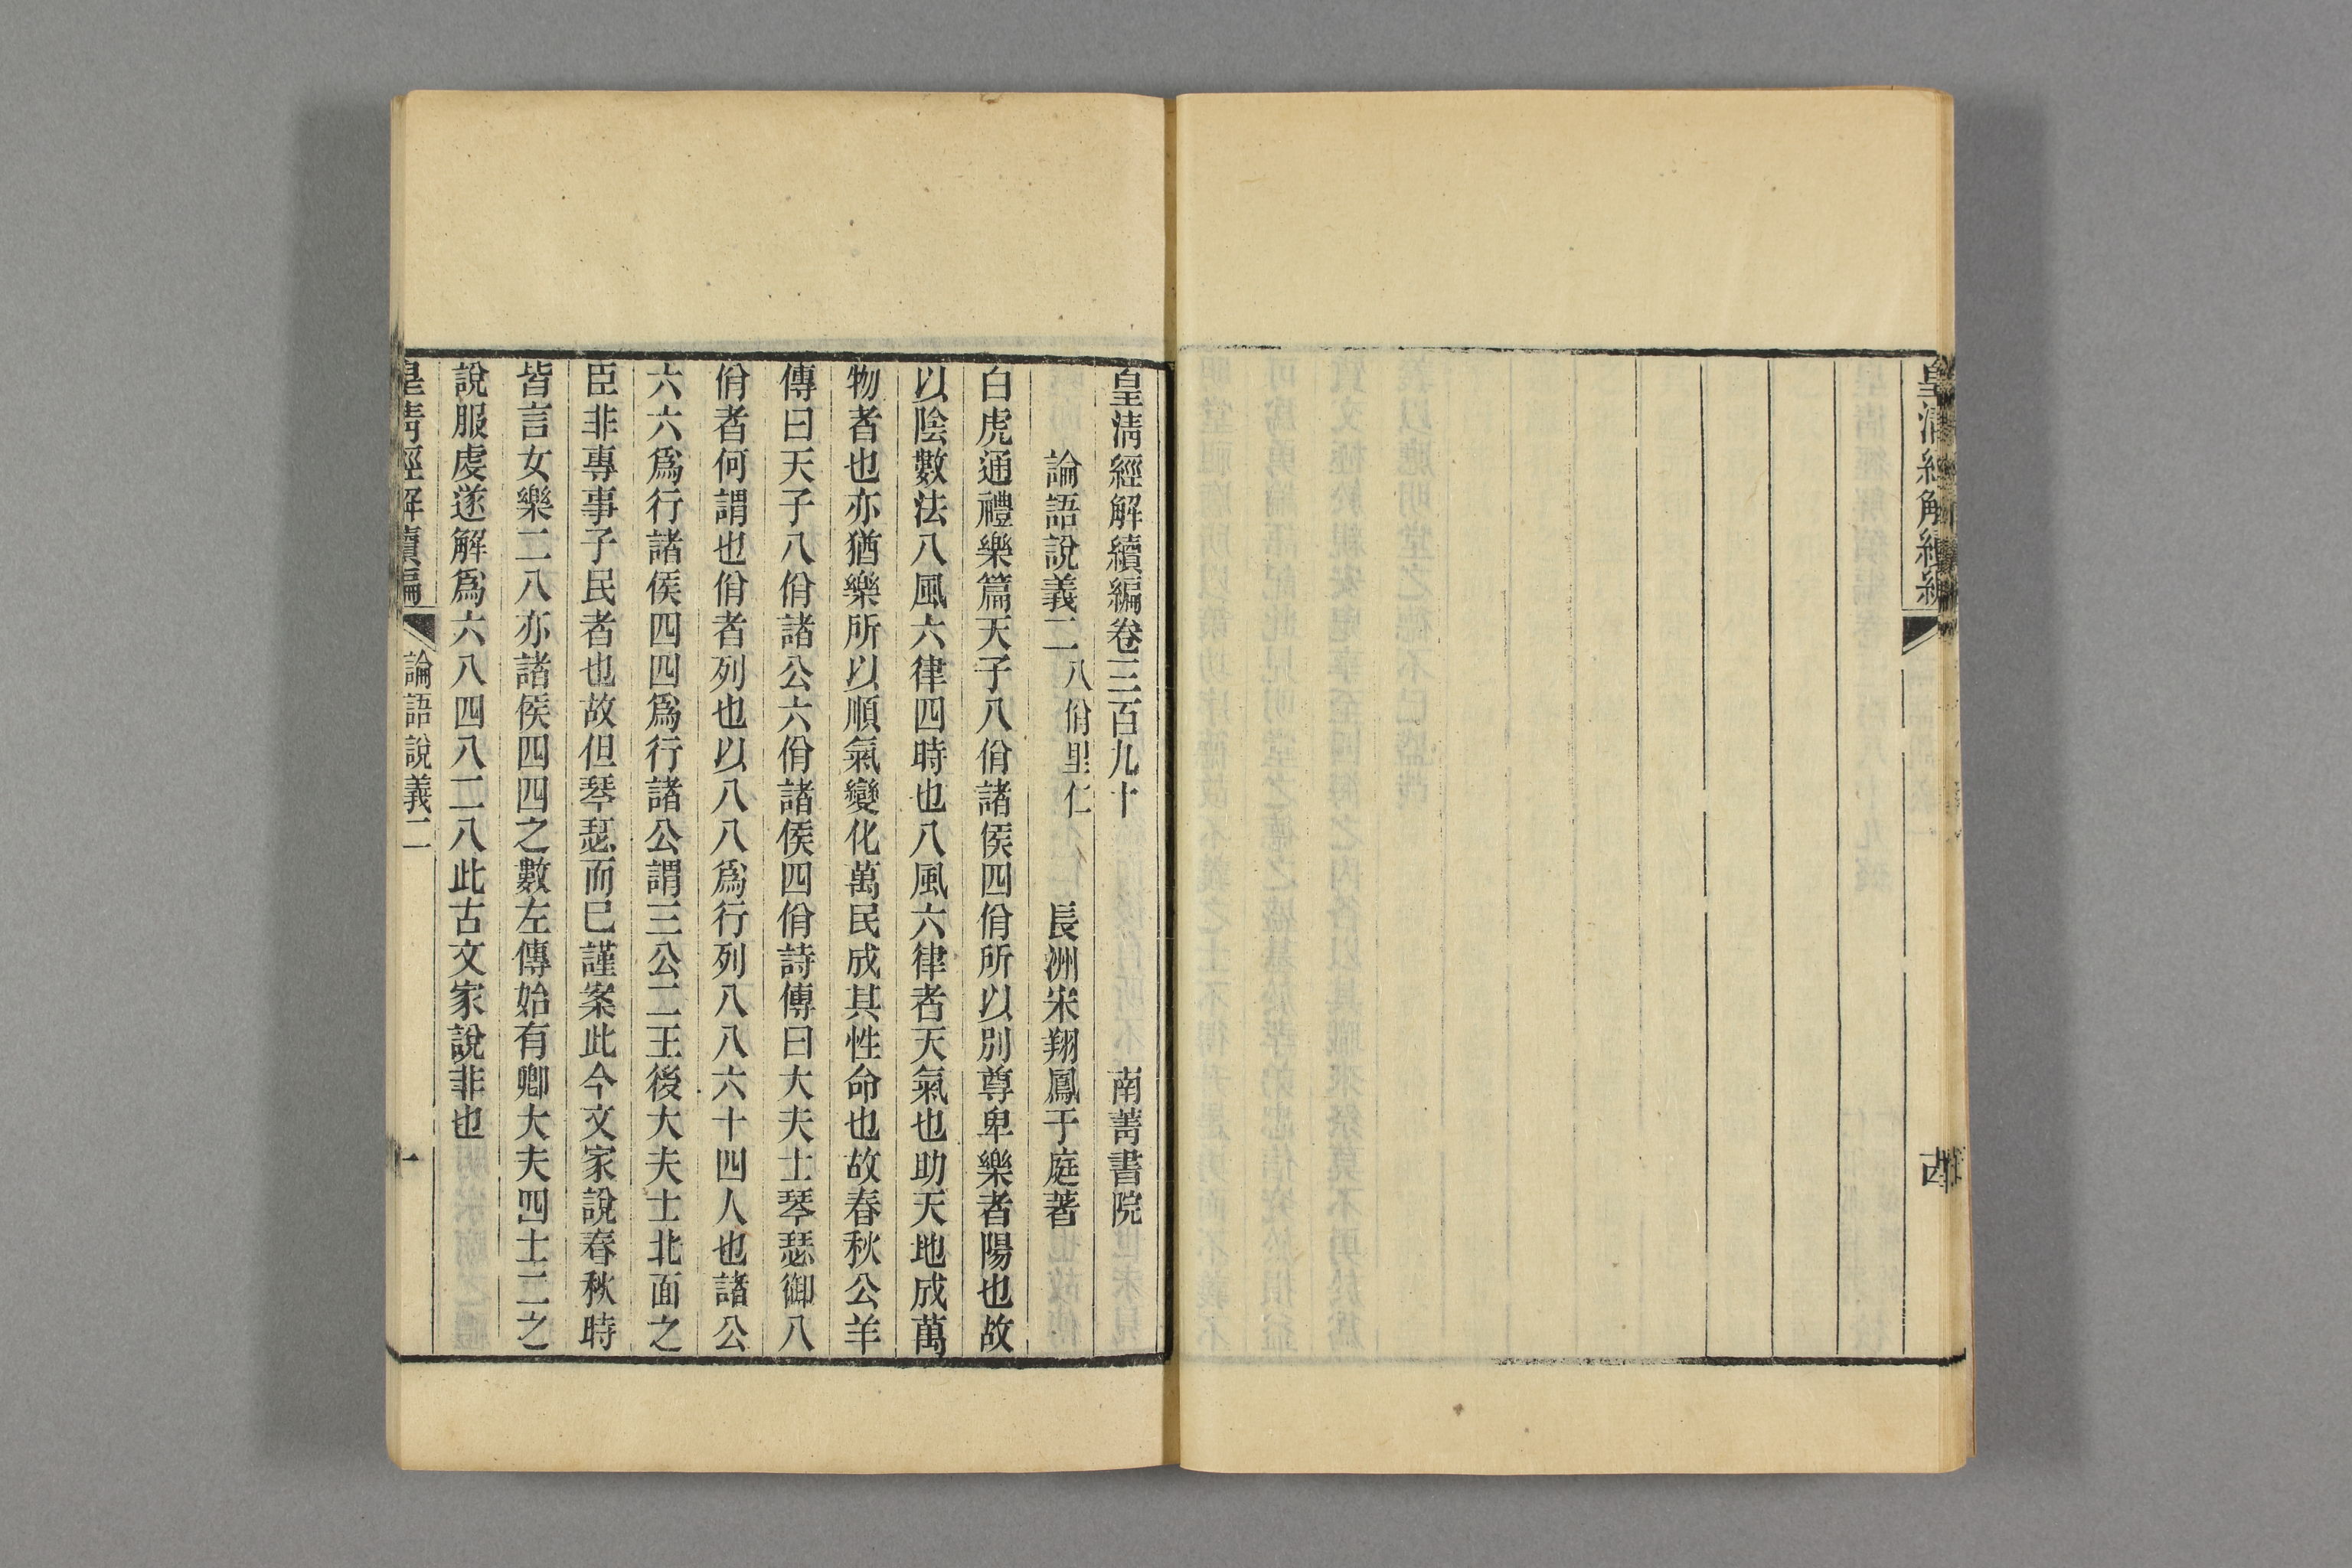 皇清經解續編
皇清經解續編卷三百九十
南菁書院
論語說義二
八佾里仁
長洲宋翔鳳于庭著
白虎通禮樂篇天子八佾諸侯四佾所以別尊卑樂者陽也故
以陰數法八風六律四時也八風六律者天氣也助天地成萬
物者也亦猶樂所以順氣變化萬民成其性命也故春秋公羊
傳曰天子八佾諸公六佾諸侯四佾詩傳曰大夫士琴瑟御八
佾者何謂也佾者列也以八八爲行列八八六十四人也諸公
六六爲行諸侯四四爲行諸公謂三公二王後大夫士北面之
臣非專事子民者也故但琴瑟而巳謹案此今文家說春秋時
皆言女樂二八亦諸侯四四之數左傳始有卿大夫四士二之
說服虔遂解爲六八四八二八此古文家說非也
皇清經解續編
論語說義二
一